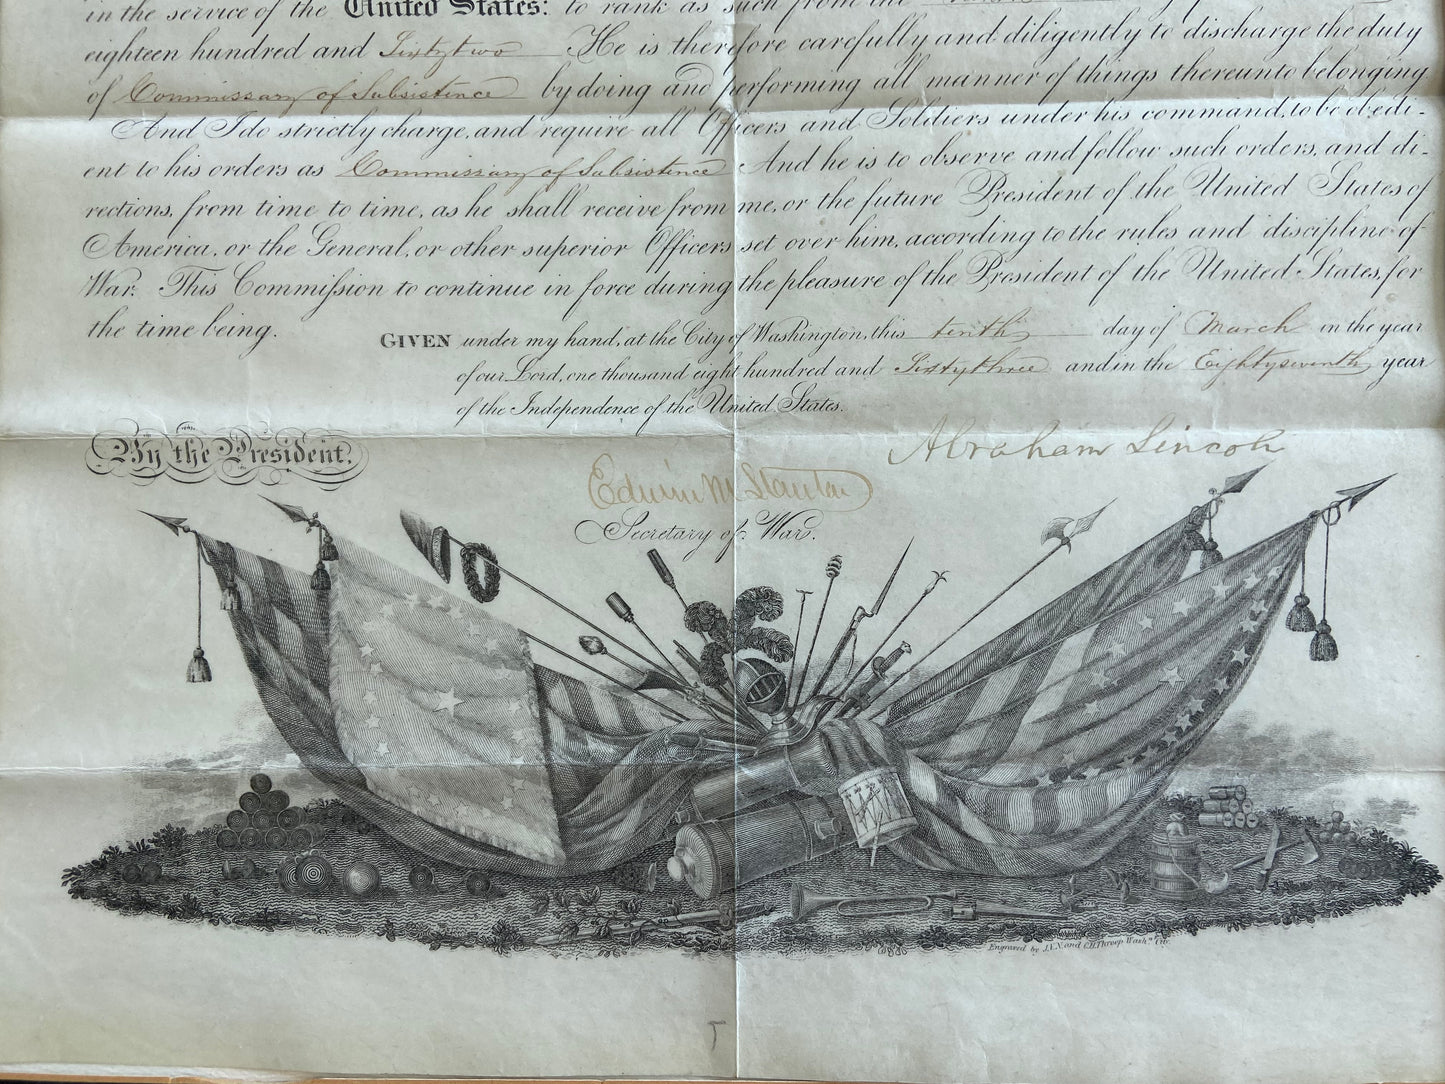 in the service of the United States: to rank as such from the
eighteen hundred and Sixty two He is therefore carefully and diligently to discharge the duty
of Commissary of Subsistence by doing and performing all manner of things thereunto belonging
And I do strictly charge, and require all Officers and Soldiers under his command, to be obedi-
ent to his orders as Commissary of Subsistence And he is to observe and follow such orders, and di-
rections, from time to time, as he shall receive from me, or the future President of the United States of
America, or the General, or other superior Officers set over him, according to the rules and discipline of
War. This Commission to continue in force during the pleasure of the President of the United States, for
the time being.
GIVEN under my hand, at the City of Washington, this tenth day of March in the year
of our Lord, one thousand eight hundred and Sixty three and in the Eighty seventh year
of the Independence of the United States.
By the President.
Abraham Lincoln
Edwin M Stanton
Secretary of War.
Engraved by J.V.N. and O.H. Throop Wash.n City.